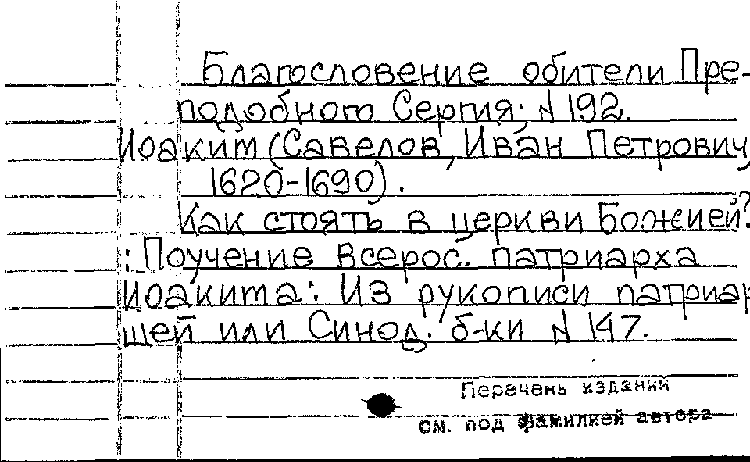 Благословение обители Пре-
подобного Сергия; N 192.
Иоаким (Савелов, Иван Петрович,
1620-1690).
Как стоять в церкви Божией?
: Поучение Всерос. патриарха
Иоакима: Из рукописи патриар
шей или Синод. б-ки N 147.
Перечень изданий
см. под фамилией автора